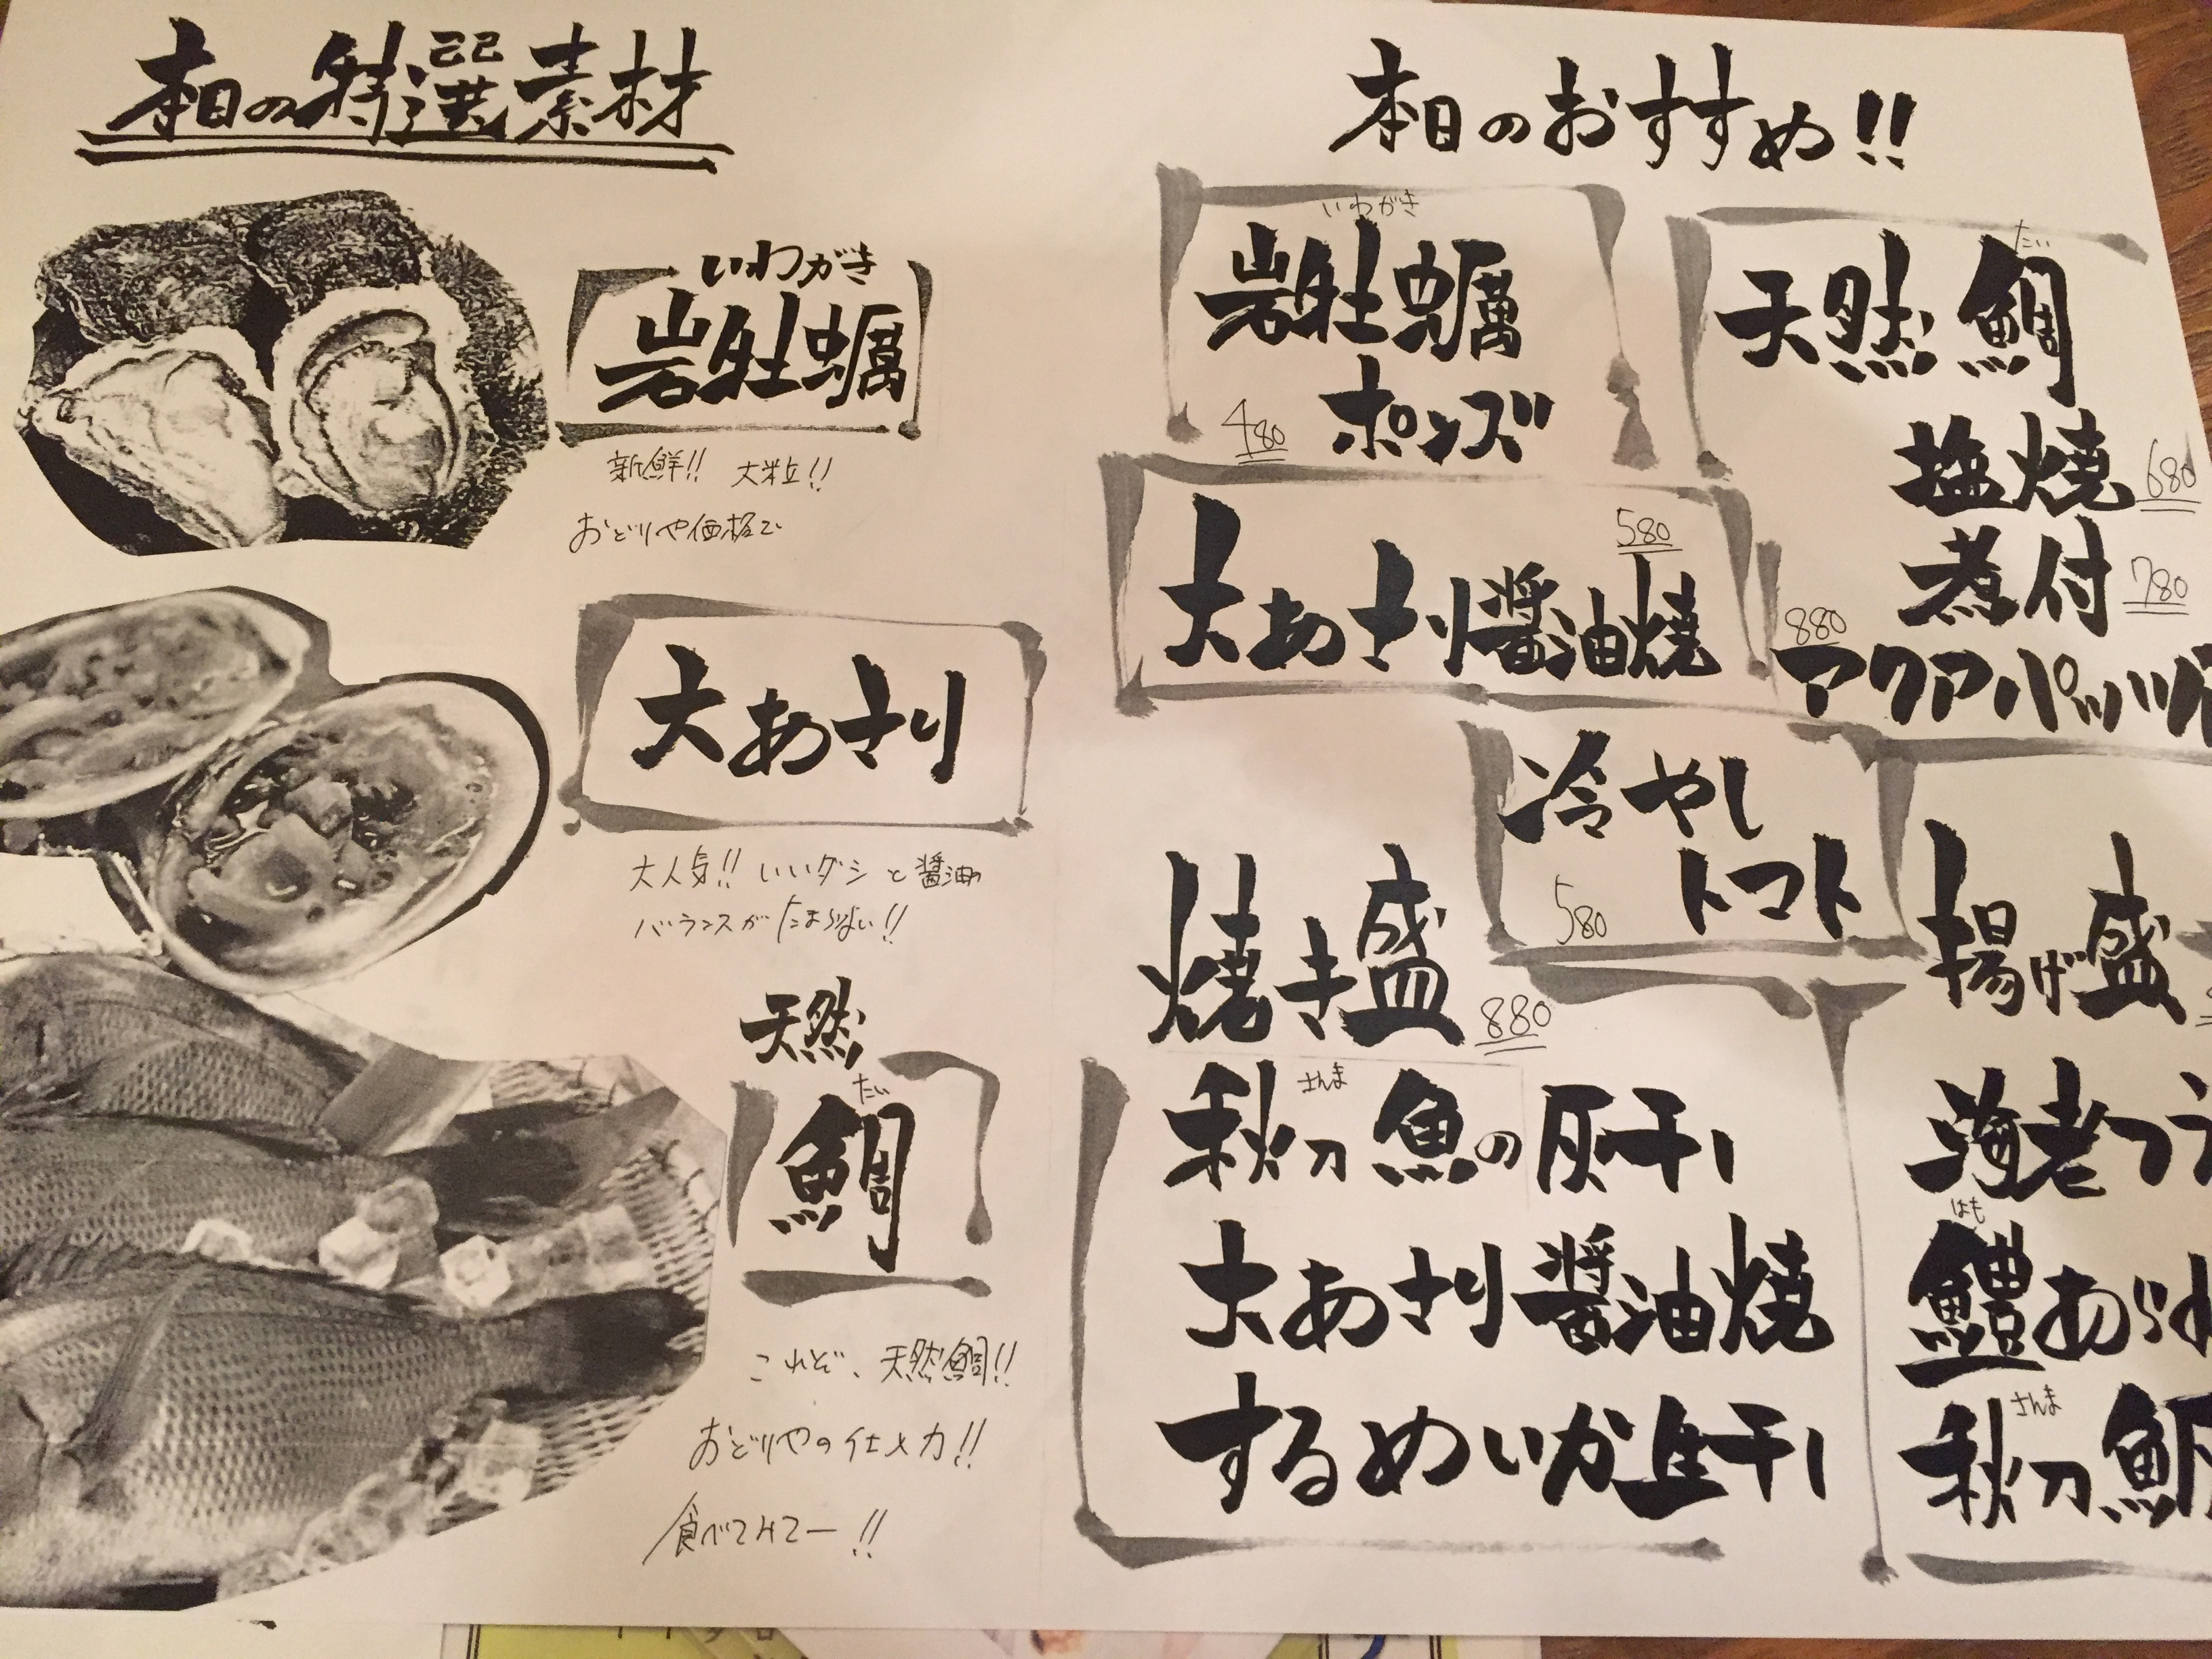 本日の特選素材
いわがき
岩牡蠣
新鮮!! 大粒!!
おどりや価格で
大あさり
大人気!! いいダシと醤油の
バランスがたまらない!!
天然
たい
鯛
これぞ、天然鯛!!
おどりやの仕入力!!
食べてみてー!!
本日のおすすめ!!
いわがき
岩牡蠣
ポンズ
480
たい
天然鯛
塩焼 680
煮付 780
880
アクアパッツァ
580
大あさり醤油焼
冷やし
トマト
580
焼き盛 880
さんま
秋刀魚の肝干し
大あさり醤油焼
するめいか生干し
揚げ盛
海老フラ
はも
鱧あられ
さんま
秋刀魚